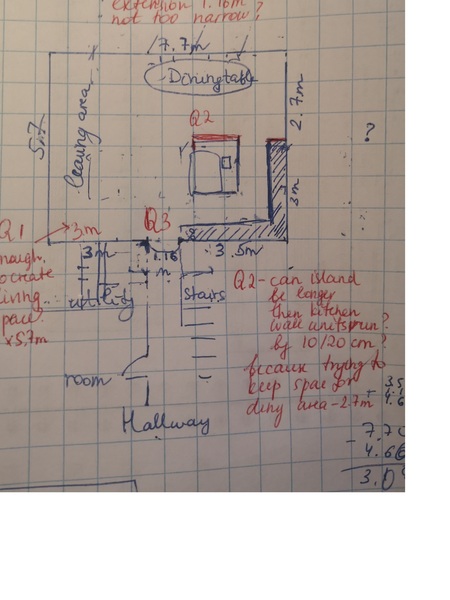 extension 1.16m
not too narrow?
7.7m
Diningtable
5.7
leaving area
2.7m
Q2
?
3m
Q1
3m
Q3
3m
1.16
m
3.5m
utility
stairs
Q2-can island
be longer
then kitchen
wall units run?
by 10/20 cm?
because trying to
keep space for
diny area-2.7m
room
Hallway
x5,7m
3.5
7.70
4.66
3.0